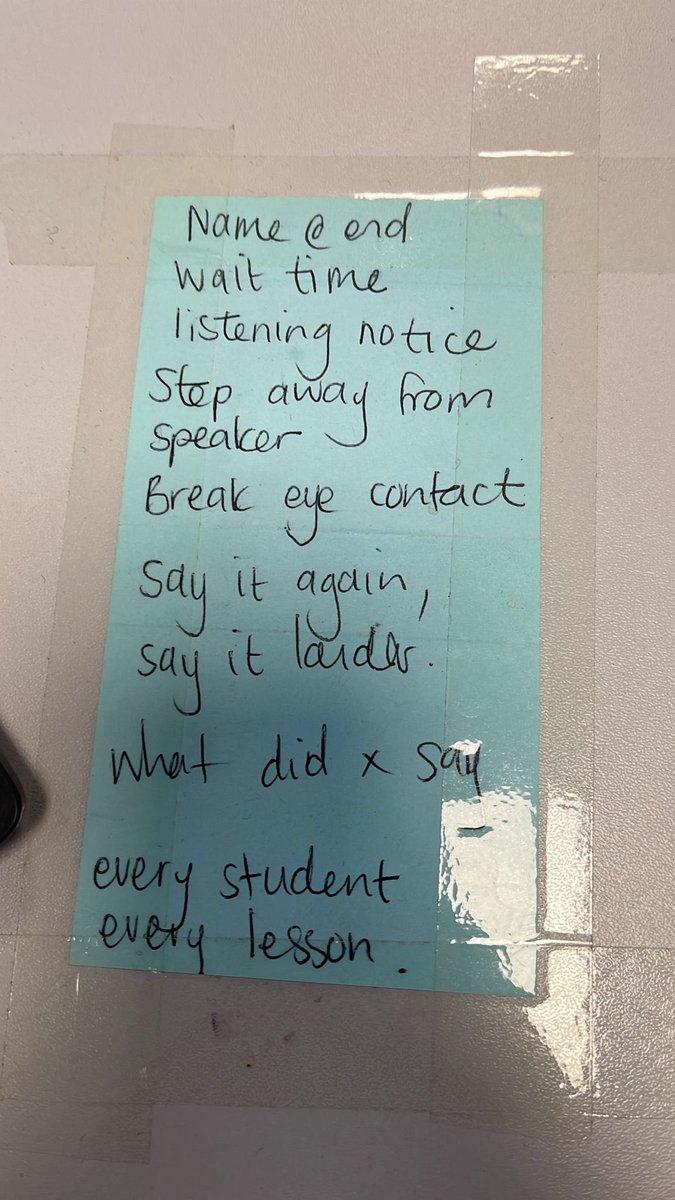 Name @ end
wait time
listening notice
Step away from
speaker
Break eye contact
say it again,
say it louder.
what did x say
every student
every lesson.